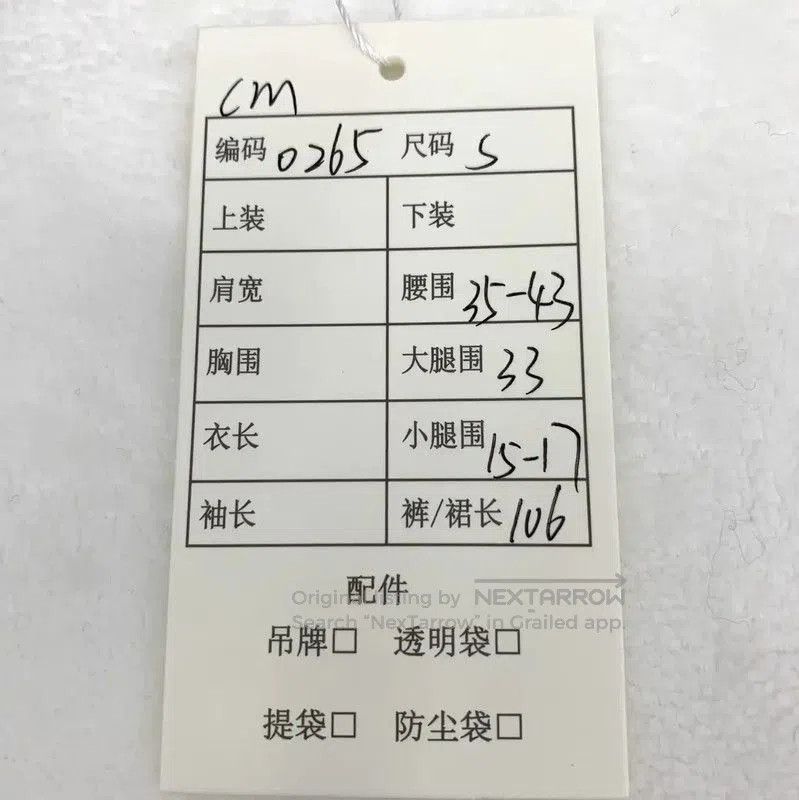 cm
编码 0265 尺码 S
上装 下装
肩宽 腰围 35-43
胸围 大腿围 33
衣长 小腿围 15-17
袖长 裤/裙长 106
配件
Original listing by NEXTARROW
Search "NexTarrow" in Grailed app.
吊牌□ 透明袋□
提袋□ 防尘袋□